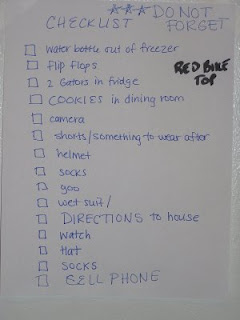 *** DO NOT
CHECKLIST FORGET
water bottle out of freezer
flip flops
2 Gators in fridge
COOKIES in dining room
RED BIKE
TOP
camera
shorts/something to wear after
helmet
socks
goo
wet suit/
DIRECTIONS to house
watch
Hat
SOCKS
CELL PHONE